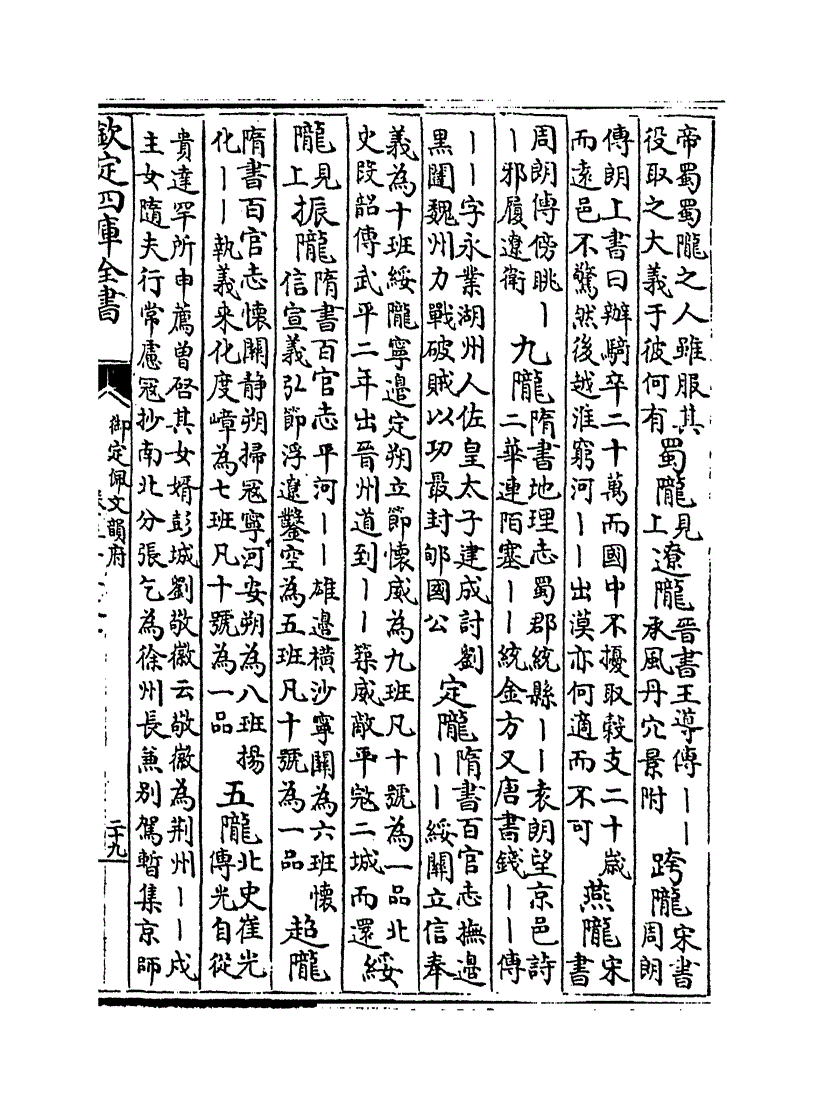 帝蜀蜀隴之人雖服其役取之大義于彼何有 蜀隴見上 遼隴晉書王導傳丨丨承風丹穴景附 跨隴宋書周朗
傳朗上書曰辦騎卒二十萬而國中不擾取榖支二十歲而遠邑不驚然後越淮窮河丨丨出漠亦何適而不可 燕隴宋書
周朗傳傍眺丨丨邪履遼衛 九隴隋書地理志蜀郡統縣丨丨袁朗望京邑詩二華連陌塞丨丨統金方又唐書錢丨丨傳
丨丨字永業湖州人佐皇太子建成討劉黒闥魏州力戰破賊以功最封郇國公 定隴隋書百官志撫邊丨丨綏關立信奉
義為十班綏隴寧邊定朔立節懷威為九班凡十號為一品北史段韶傳武平二年出晉州道到丨丨築威敵平㓂二城而還 綏
隴見上 振隴隋書百官志平河丨丨雄邊橫沙寧關為六班懷信宣義弘節浮遼鑿空為五班凡十號為一品 超隴
隋書百官志懷關静朔掃冦寧河安朔為八班揚化丨丨執義来化度嶂為七班凡十號為一品 五隴北史崔光傳光自從
貴達罕所申薦曽啓其女婿彭城劉敬徽云敬徽為荆州丨丨戍主女隨夫行常慮冦抄南北分張乞為徐州長兼别駕暫集京師
欽定四庫全書
御定佩文韻府
二十九